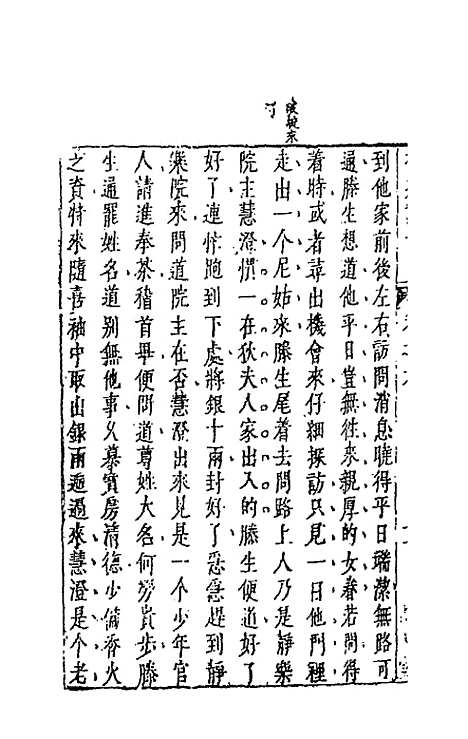 後極來
寸
到他家前後左右訪問消息曉得平日端潔無路可
通滕生想道他平日豈無徃來親厚的女眷若問得
着時或者尋出機會來仔細探訪只見一日他門裡
走出一个尼姑來滕生尾着去問路上人乃是靜樂
院主慧澄慣一在狄夫人家出入的滕生便道好了
好了連忙跑到下處將銀十兩封好了急急趕到靜
樂院來問道院主在否慧澄出來見是一个少年官
人請進奉茶稽首畢便問道尊姓大名何勞貴步滕
生通罷姓名道别無他事久慕寳房清德少偹香火
之資特來隨喜袖中取出銀兩遞過來慧澄是个老